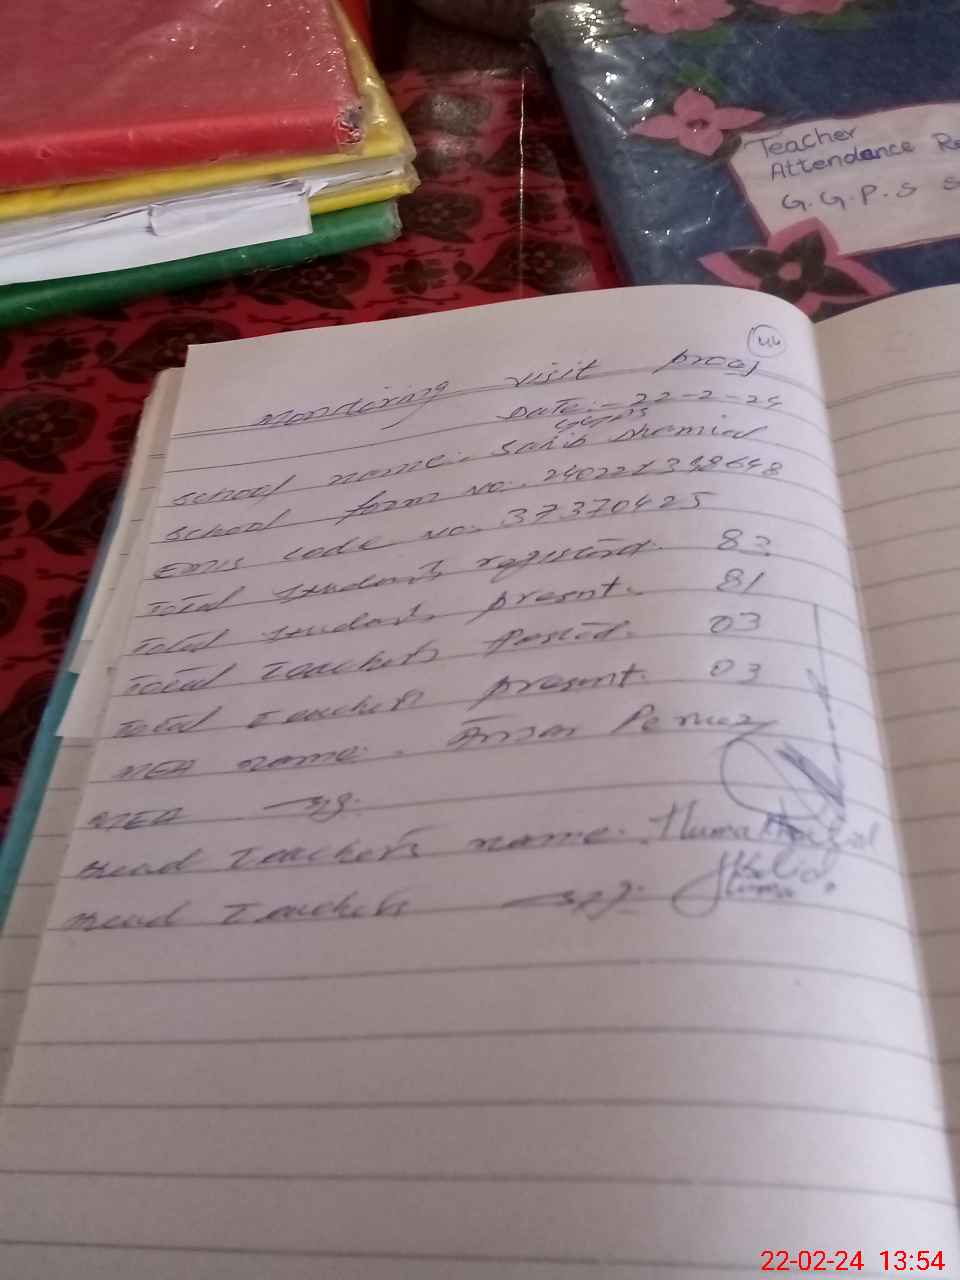 Teacher
Attendance Re
G.G.P.S S
44
Monitoring visit proof
Date:- 22-2-24
GGPS
School name:- Sahib Shamid
School form No:. 240221398648
EMIS code No:. 37370425
Total students registered. 83
Total students present. 81
Total Teachers Posted. 03
Total Teachers present. 03
MEA name:. Ansar Pervez
MEA sig:
Head Teachers name. Huma
Head Teachers sig:
22-02-24 13:54